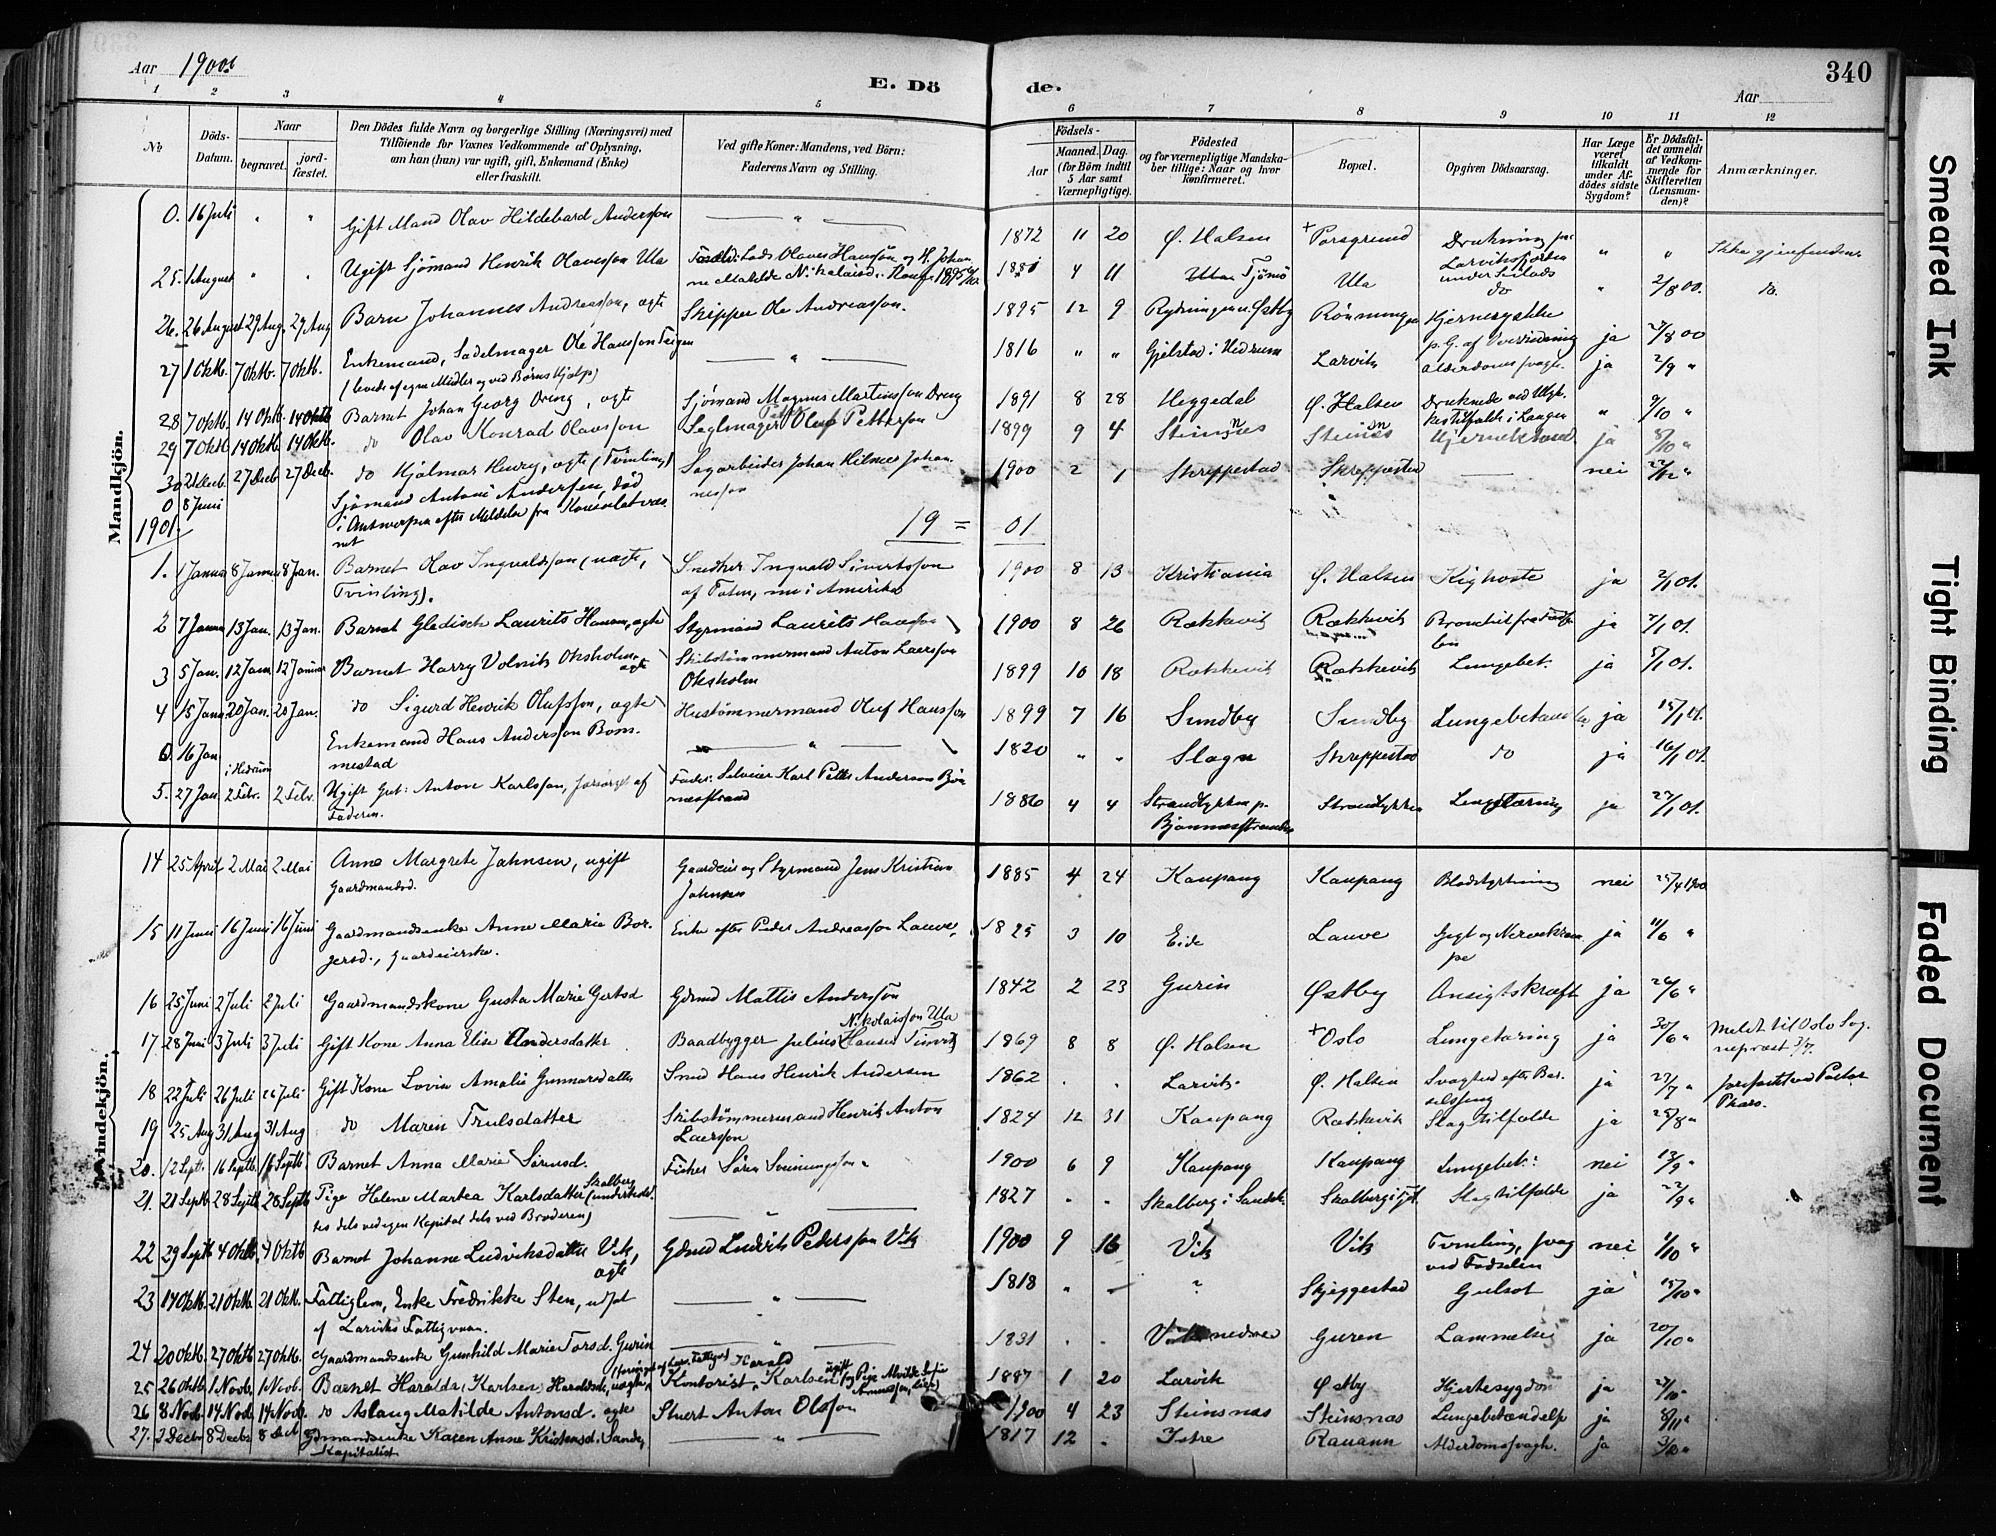 Aar 1900
E. Dö
de.
340
Aar
1 2 3 4 5 6 7 8 9 10 11 12
No
Döds-Datum.
Naar
begravet.
jord-fæstet.
Den Dödes fulde Navn og borgerlige Stilling (Næringsvei) med
Tilföiende for Voxnes Vedkommende af Oplysning,
om han (hun) var ugift, gift, Enkemand (Enke)
eller fraskilt.
Ved gifte Koner: Mandens, ved Börn:
Faderens Navn og Stilling.
Födsels-
Aar
Maaned. Dag.
(for Börn indtil
5 Aar samt
Værnepligtige).
Födested
og for værnepligtige Mandska-
ber tillige: Naar og hvor
konfirmeret.
Bopæl.
Opgiven Dödsaarsag.
Har Læge
været
tilkaldt
under Af-
dödes sidste
Sygdom?
Er Dödsfal-
det anmeldt
af Vedkom-
mende for
Skifteretten
(Lensman-
den)?
Anmærkninger.
Mandkjön.
0. 16 Juli " " Gift Mand Olav Hildebard Andersson " 1872 11 20 Ø. Halsen + Porsgrund Drukning paa Larviksfjorden under Seilads " " Ikke gjenfunden
25. 1 August " " Ugift Sjömand Henrik Olavsson Ula 4 11 Ula Do.
26. 26 August 29 Aug. 29 Aug Barn Johannes Andreasson, ægte Skipper Ole Andreasson. 1895 12 9 Rönningen Hjernesygdom ja 27/8 00
27 1 Oktb. 7 Oktb. 7 Oktb. Enkemand, Sadelmager Ole Hansson Teigen " 1816 " " Gjelstad i Hedrum Larvik ja 2/9 "
(levede af egne Midler og ved Børns Hjælp)
28 7 Oktb. 14 Oktb. 14 Oktb Barnet Johan Georg Dreng, ægte Sjömand Magnus Martinsson Dreng 1891 8 28 Heggedal Ø. Halsen Druknede ved Ulyk-kestilfælde i Laagen " 9/10 "
29 7 Oktb 14 Oktb. 14 Oktb. do Olav Konrad Olavsson Seglmager Petterson 1899 9 4 Steinsnes Steinsnes ja 8/10 "
30 2 Decb. 27 Decb 27 Decb. do Hjalmar Henry, ægte (Tvilling) Sagarbeider Johan Hilmer Johan-nesson 1900 2 1 Skreppestad Skreppestad nei 22/12 "
0 8 Juni Sjömand Antoni Andersen, död
i Antwerpen efter Meldelse fra Konsulatvæs-net
1901. 19 = 01
1. 1 Januar 8 Januar 8 Jan. Barnet Olav Ingvaldsson (uægte, Tvilling). Snedker Ingvald Sivertsson af Foten, nu i Amerika 1900 8 13 Kristiania Ø. Halsen Kighoste ja 2/1 01.
2 7 Januar 13 Jan. 13 Jan. Barnet Gledisch Laurits Hansen, ægte Styrmand Laurits Hansson 1900 8 26 Rækkevik Rækkevik ja 7/1 01.
3 5 Jan. 12 Jan. 12 Januar Barnet Harry Volrik Oksholm, ægte Skibstömmermand Anton Laersson Oksholm 1899 10 18 Rækkevik Rækkevik Lungebet. ja 5/1 01.
4 15 Janu 20 Jan. 20 Jan. do Sigurd Henrik Olufsson, ægte Hustömmermand Oluf Hansson 1899 7 16 Sundby Sundby Lungebetændelse ja 15/1 01.
0. 16 Jan i Hedrum Enkemand Hans Andersson Bom-mestad " 1820 " " Slagn Skreppestad do ja 16/1 01.
5. 27 Jan. 2 Febr. 2 Febr. Ugift Gut: Antove Karlsson, forsørget af Faderen. Fader: Selveier Karl Petter Andersen Bjön-næsstrand 1886 4 4 Strandlykken p. Bjønnæsstranden Strandlykken Lungetæring ja 27/1 01.
Kvindekjön.
14 25 April 2 Mai 2 Mai Anne Margrete Jahnsen, ugift Gaardmandsd. Gaardeier og Styrmand Jens Kristian Jahnsen 1885 4 24 Kaupang Kaupang Blodstyrtning nei 25/4 1900
15 11 Juni 16 Juni 16 Juni Gaardmandsenke Anne Marie Bor-gersd., Gaardeierske. Enke efter Peder Andreasson Lauve. 1825 3 10 Eide Lauve Gigt og Nervekram-pe ja 11/6 "
16 25 Juni 2 Juli 2 Juli Gaardmandskone Gusta Marie Gertsd Gdmd Mattis Andersson 1842 2 23 Gurin Østby Ansigtskræft ja 26/6 "
17. 28 Juni 3 Juli 3 Juli Gift Kone Anna Elise Andersdatter Baadbygger Julius Hansen Nikolaisson Ula 1869 8 8 Ø. Halsen + Oslo Lungetæring ja 30/6 " Meldt til Oslo Sog-nepræst 3/7.
18 22 Juli 26 Juli 26 Juli Gift Kone Lovise Amalie Gunnarsdatter Smed Hans Henrik Andersen 1862 " " Larvik Ø. Halsen Svaghed efter Bar-selseng ja 27/7 " forrettet ved Pastor
19 25 Aug 31 Aug 31 Aug do Maren Trulsdatter Skibstömmermand Henrik Anton Laersson 1824 12 31 Kaupang Rækkevik Slagtilfælde ja 25/8 "
20. 12 Septb. 16 Septb. 16 Septb Barnet Anna Marie Sörensd. Fisker Sören Sveinungsson 1900 6 9 Kaupang Kaupang Lungebet. nei 13/9 "
21. 21 Septb 28 Septb 28 Septb Pige Helene Martea Karlsdatter Skalberg (underholdt-tes dels ved egen Kapital dels ved Broderen) " 1827 " " Skalberg i Sandeh. Skalberg Slagtilfælde ja 22/9 "
22 29 Septb 4 Oktb. 4 Oktb Barnet Johanne Ludviksdatter Vik, ægte Gdmd Ludvik Pedersson Vik 1900 9 16 Vik Vik Tvilling, svag ved Fødselen nei 1/10 "
23 14 Oktb. 21 Oktb. 21 Oktb. Fattiglem, Enke Fredrikke Sten, udsat af Larviks Fattigvæsn. " 1818 " " ? Skjeggestad Gulsot ja 15/10 "
24 20 Oktb. 27 Oktb. 27 Oktb. Gaardmandsenke Gunhild Marie Torsd. Gurin " 1831 " " Guren Lammelse ja 20/10 "
25 26 Oktb. 1 Novb. 1 Novb. Barnet Haralda Karlsen, Haraldsd., uægte, Kontorist Harald Karlsen, ugift 1887 1 20 Larvik Østby Hjertesygdom ja 27/10
26 8 Novb. 14 Novb. 14 Novb. do Aslaug Matilde Antonsd. ægte Stuert Anton Olsson 1900 4 23 Steinsnæs Steinsnæs Lungebetændelse ja 8/11 "
27. 2 Decbr 8 Decbr 8 Decb Gdmandsenke Karen Anne Kristensd. Sande, Kapitalist " 1817 12 " Istre Rauann Alderdomssvagh. ja 3/12 "
Smeared Ink
Tight Binding
Faded Document